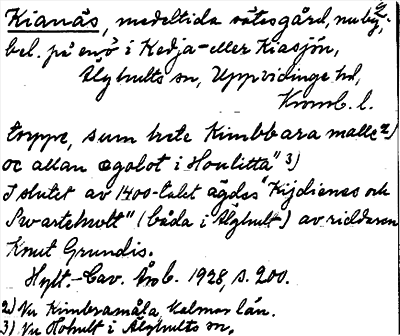 Kianäs, medeltida sätesgård, nu by,
bel. på en ö i Kedja- eller Kiasjön,
Älghults sn, Uppvidinge hd,
Kronb. l.
torppe, sum hete Kimbbara malle 2)
oc allan ægolot i Houlitta" 3)
I slutet av 1400-talet ägdes "Kijdienes och
Swartehwlt" (båda i Älghult) av riddaren
Knut Grundis.
Hylt.-Cav. Årsb. 1928, s. 200.
2) Nu Kimbramåla, Kalmar län.
3) Nu Hohult i Älghults sn.